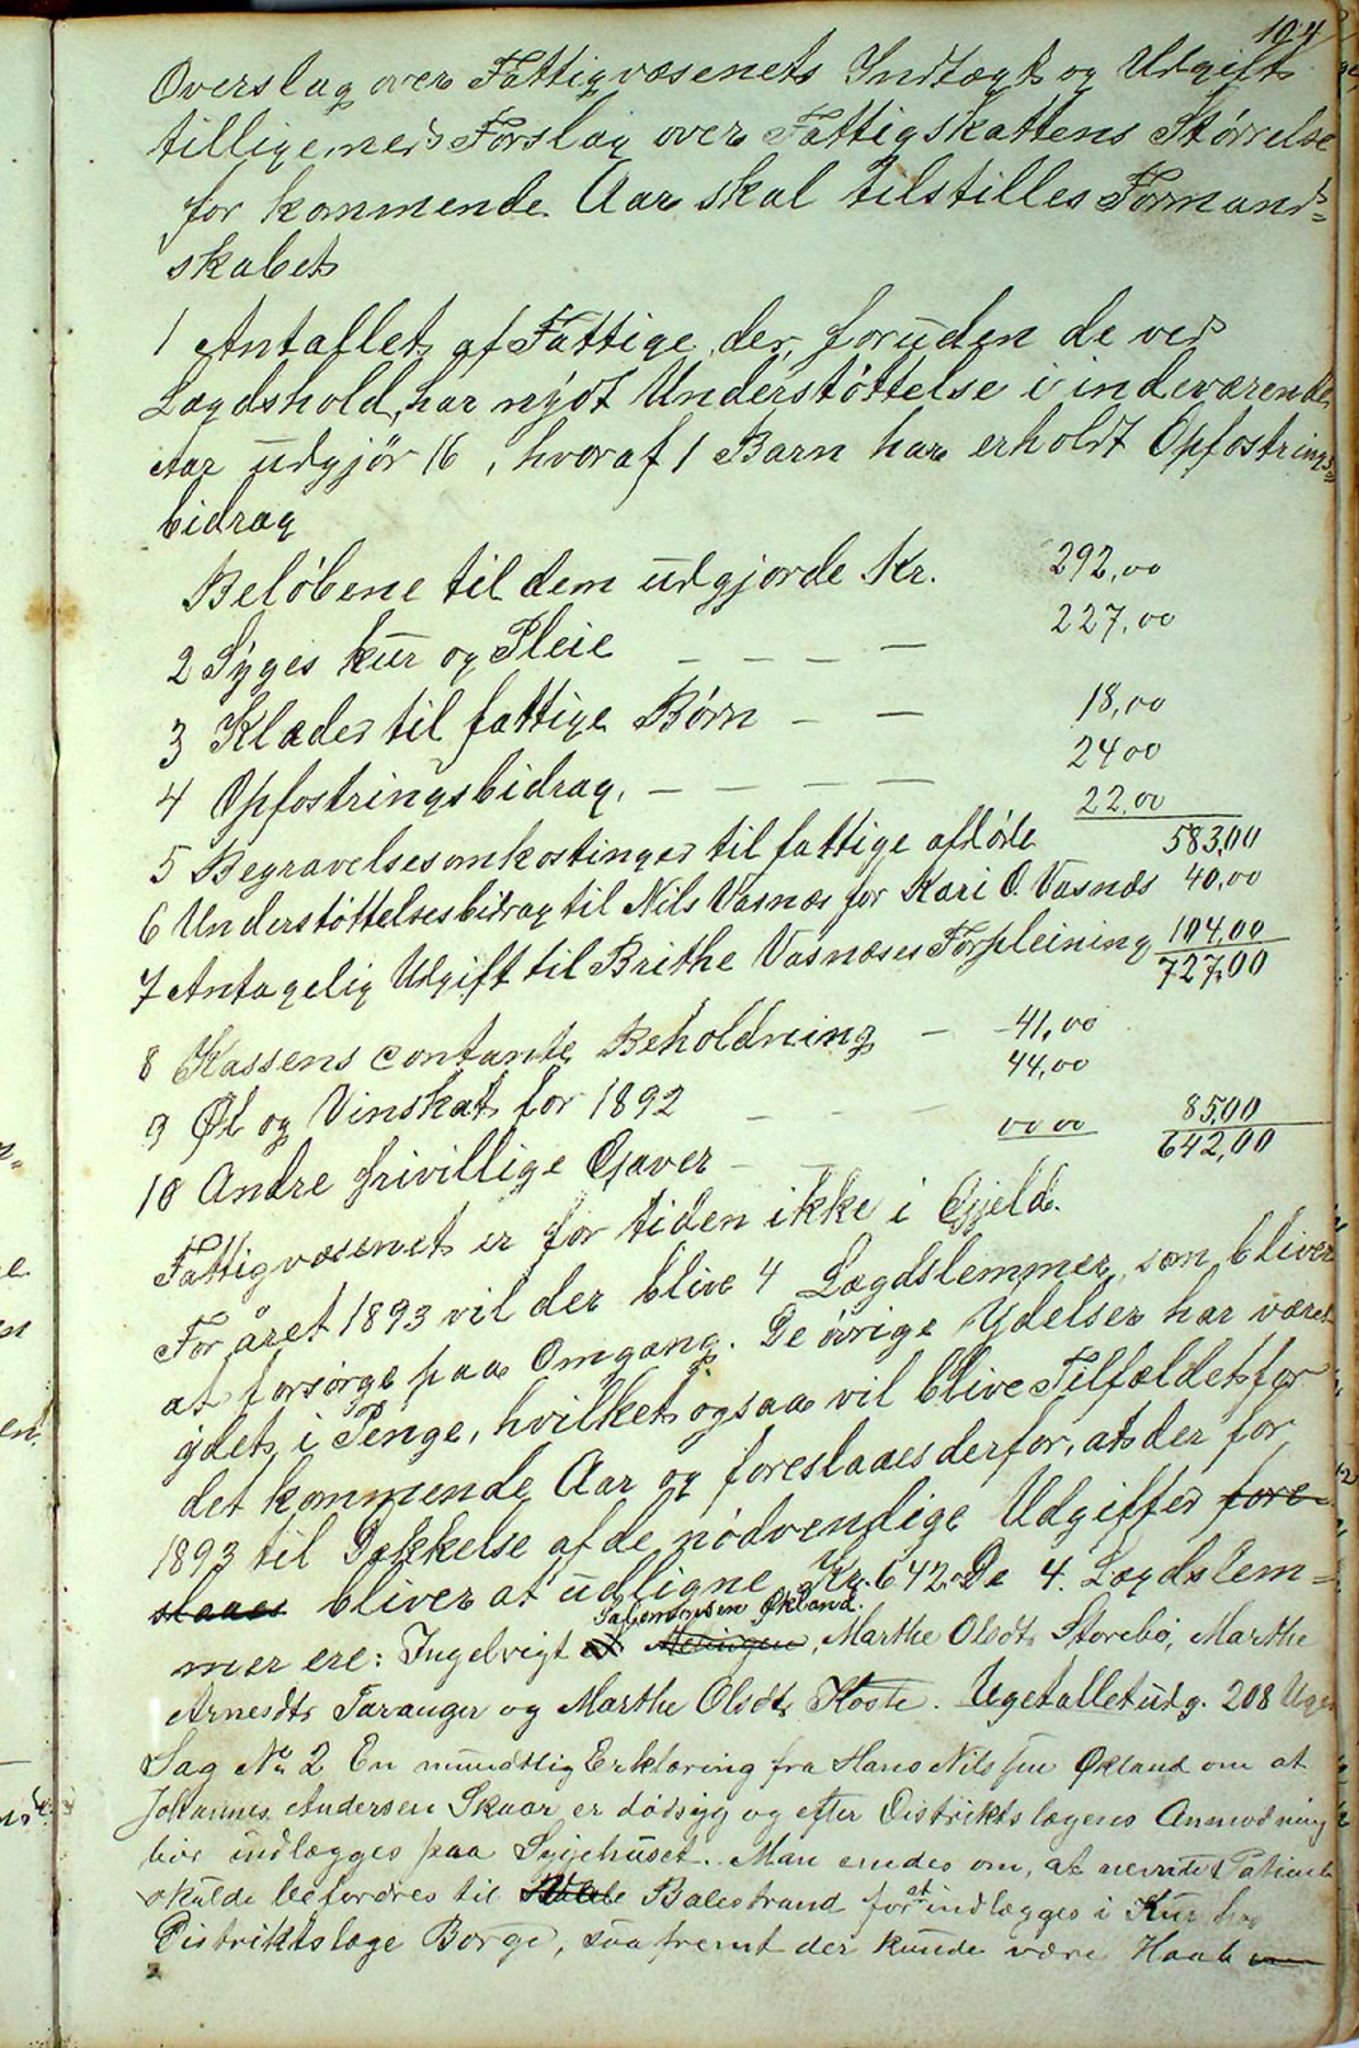 104
Overslag over Fattigvæsenets Indtægt og Udgift
tilligemed Forslag over Fattigskattens Størrelse
for kommende Aar skal tilstilles Formand=
skabet
1 Antallet af Fattige der, foruden de ved
Lægdshold, har nydt Understøttelse i indeværende
Aar udgjør 16, hvoraf 1 Barn har erholdt Opfostrings=
bidrag
Beløbene til dem udgjorde Kr. 292,00
2 Syges kur og Pleie — — — — 227,00
3 Klæder til fattige Børn — — 18,00
4 Opfostringsbidrag. — — — — 24 00
5 Begravelsesomkostinger til fattige afdøde 22,00 583,00
6 Understøttelsesbidrag til Nils Vasnæs for Kari O. Vasnæs 40,00
7 Antagelig Udgift til Brithe Vasnæses Forpleining 104,00
727,00
8 Kassens contante Beholdning — 41,00
9 Øl og Vinskat for 1892 — — — 44,00
10 Andre frivillige Gaver — — 00 00 85,00
642,00
Fattigvæsenet er for tiden ikke i Gjeld.
For året 1893 vil der blive 4 Lægdslemmer som bliver
at forsørge paa Omgang. De øvrige Ydelser har været
ydet i Penge, hvilket ogsaa vil blive Tilfældet for
det kommende Aar og foreslaaes derfor, at der for
1893 til Dækkelse af de nødvendige Udgifter fore-
slaaes bliver at udligne Kr. 642. De 4. Lægdslem=
Salomonsen Økland.
mer ere: Ingelrigt Melingen, Marthe Olsdt Storebø, Marthe
Arnesdt Taranger og Marthe Olsdt Hoste. Ugetallet udg. 208 Uger
Sag No 2 En mundtlig Erklæring fra Hans Nilssen Økland om at
Johannes Andersen Skaar er dødssyg og efter Distriktslægens Anmodning
bør indlægges paa Sygehuset. Man enedes om, at nævnte Patient
skulde befordres til Balestrand for at indlægges i Kur hos
Distriktslæge Borge, saafremt der kunde være Haab